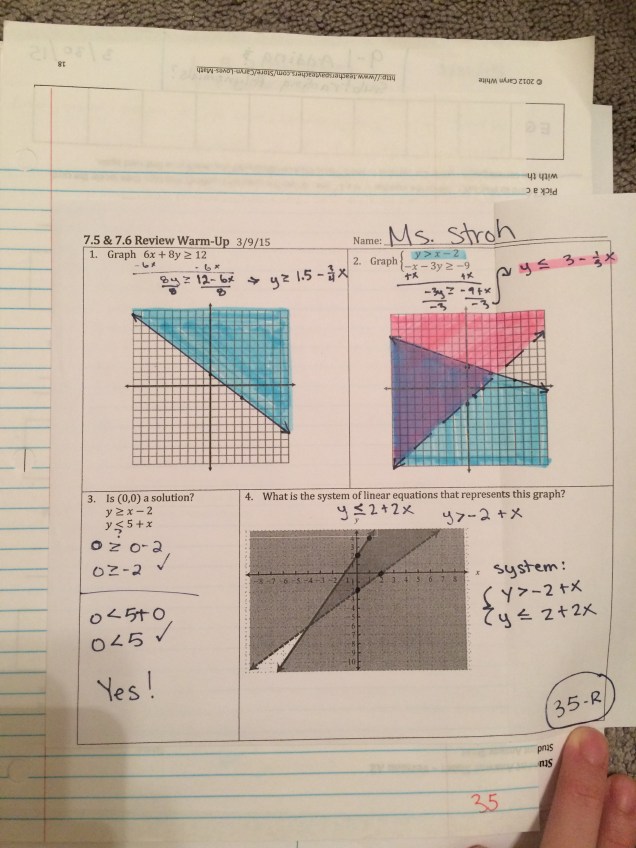 18
http://www.teacherspayteachers.com/Store/Caryn-Loves-Math
© 2012 Caryn White
3/30/15
with th
Pick a c
7.5 & 7.6 Review Warm-Up 3/9/15
Name: Ms. Stroh
1. Graph 6x + 8y ≥ 12
-6x -6x
8y ≥ 12-6x → y ≥ 1.5 - 3/4 x
8 8
2. Graph { y > x - 2
-x - 3y ≥ -9
+x +x
-3y ≥ -9+x
-3 -3
y ≤ 3 - 1/3 x
3. Is (0,0) a solution?
y ≥ x - 2
y ≤ 5 + x
?
0 ≥ 0-2
0 ≥ -2 ✓
0 < 5+0
0 < 5 ✓
Yes!
4. What is the system of linear equations that represents this graph?
y ≤ 2+2x y > -2 + x
y
x
-8 -7 -6 -5 -4 -3 -2 -1 1 2 3 4 5 6 7 8
system:
{ y > -2+x
y ≤ 2+2x
35-R
Stud
Stu
35